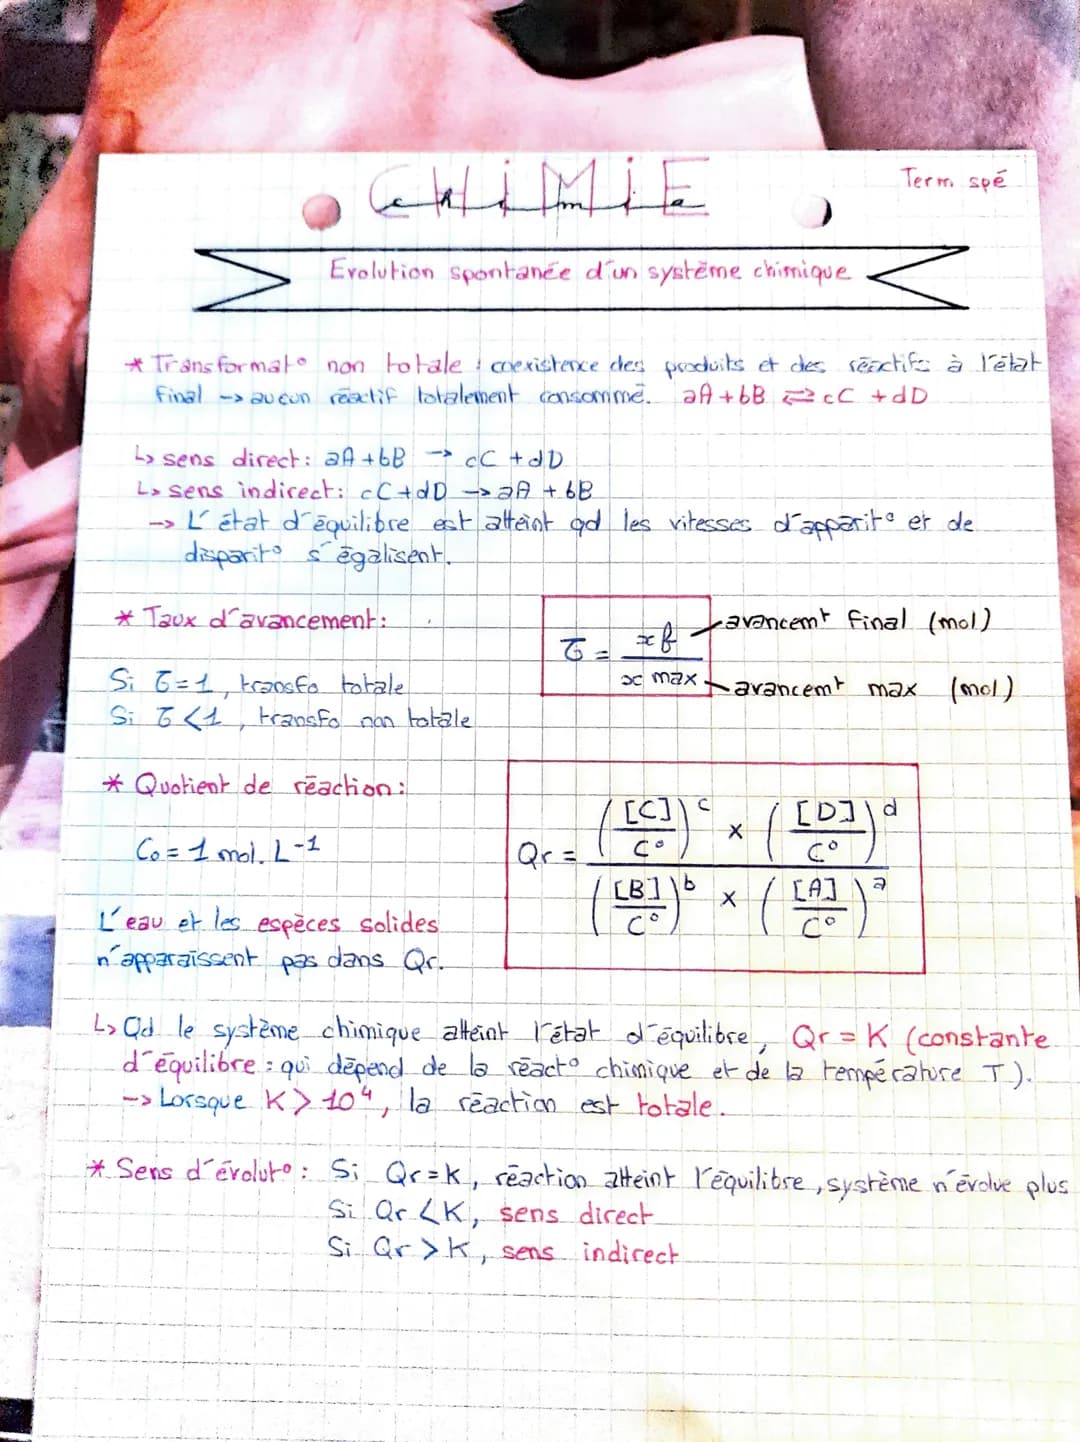 CHIMIE
Term spé
Evolution spontanée d'un système chimique
* Transformat° non totale : coexistence des produits et des réactifs à l'état
final -> aucun réactif totalement consommé. aA + bB ⇌ cC + dD
↳ sens direct : aA + bB → cC + dD
↳ sens indirect : cC + dD → aA + bB
→ L'état d'équilibre est atteint qd les vitesses d'apparit° et de
disparit° s'égalisent.
* Taux d'avancement :
τ = xf / x max
avancemt final (mol)
avancemt max (mol)
Si τ = 1, transfo totale
Si τ < 1, transfo non totale
* Quotient de réaction :
C0 = 1 mol. L-1
Qr = (([C]/C°)^c × ([D]/C°)^d) / (([B]/C°)^b × ([A]/C°)^a)
L'eau et les espèces solides
n'apparaissent pas dans Qr.
↳ Qd le système chimique atteint l'état d'équilibre, Qr = K (constante
d'équilibre : qui dépend de la réact° chimique et de la température T).
-> Lorsque K > 10^4, la réaction est totale.
* Sens d'évolut° : Si Qr = K, réaction atteint l'équilibre, système n'évolue plus
Si Qr < K, sens direct
Si Qr > K, sens indirect